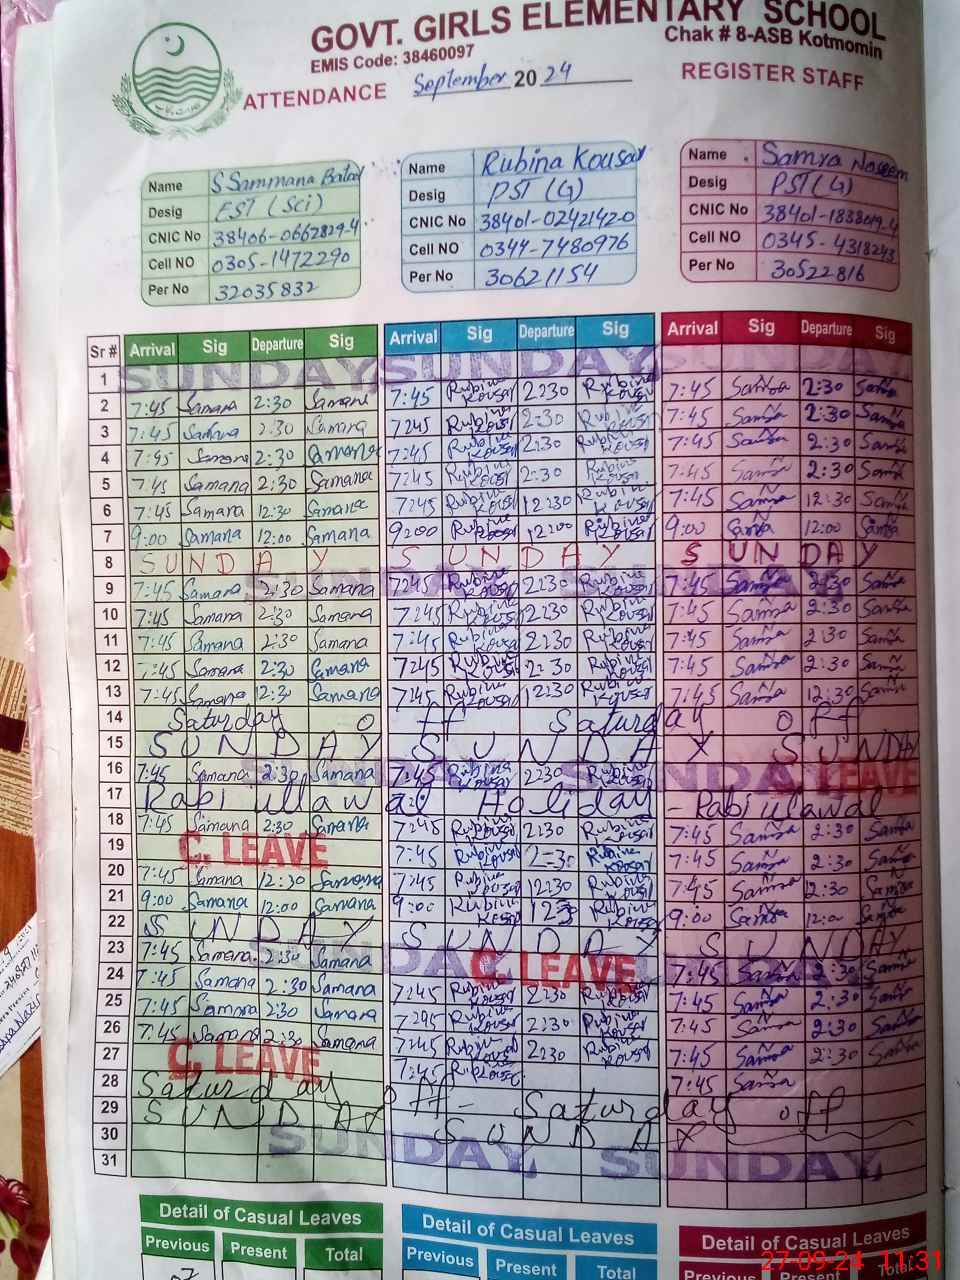 GOVT. GIRLS ELEMENTARY SCHOOL
EMIS Code: 38460097
Chak # 8-ASB Kotmomin
ATTENDANCE September 2024 REGISTER STAFF
Name S Sammana Batool
Desig EST (Sci)
CNIC No
Cell NO 0305-1472290
Per No 32035832
Name Rubina Kousar
Desig PST(G)
CNIC No 38401-0242142-0
Cell NO 0344-7480976
Per No 30621154
Name Samra Naseem
Desig PST(G)
CNIC No
Cell NO 0345-4318243
Per No 30522816
Sr # Arrival Sig Departure Sig Arrival Sig Departure Sig Arrival Sig Departure Sig
1 SUNDAY SUNDAY SUNDAY
2 7:45 Samana 2:30 Samana 7:45 Rubina Kousar 2:30 Rubina Kousar 7:45 Samra 2:30 Samra
3 7:45 Samana 2:30 Samana 7:45 Rubina Kousar 2:30 Rubina Kousar 7:45 Samra 2:30 Samra
4 7:45 Samana 2:30 Samana 7:45 Rubina Kousar 2:30 Rubina Kousar 7:45 Samra 2:30 Samra
5 7:45 Samana 2:30 Samana 7:45 Rubina Kousar 2:30 Rubina Kousar 7:45 Samra 2:30 Samra
6 7:45 Samana 12:30 Samana 7:45 Rubina Kousar 12:30 Rubina Kousar 7:45 Samra 12:30 Samra
7 9:00 Samana 12:00 Samana 9:00 Rubina Kousar 12:00 Rubina Kousar 9:00 Samra 12:00 Samra
8 SUNDAY SUNDAY SUNDAY
9 7:45 Samana 2:30 Samana 7:45 Rubina Kousar 2:30 Rubina Kousar 7:45 Samra 2:30 Samra
10 7:45 Samana 2:30 Samana 7:45 Rubina Kousar 2:30 Rubina Kousar 7:45 Samra 2:30 Samra
11 7:45 Samana 2:30 Samana 7:45 Rubina Kousar 2:30 Rubina Kousar 7:45 Samra 2:30 Samra
12 7:45 Samana 2:30 Samana 7:45 Rubina Kousar 2:30 Rubina Kousar 7:45 Samra 2:30 Samra
13 7:45 Samana 12:30 Samana 7:45 Rubina Kousar 12:30 Rubina Kousar 7:45 Samra 12:30 Samra
14 Saturday off Saturday off
15 SUNDAY SUNDAY SUNDAY
16 7:45 Samana 2:30 Samana 7:45 Rubina Kousar 2:30 Rubina Kousar C. LEAVE
17 Rabi ullawal Holiday - Rabiulawal
18 7:45 Samana 2:30 Samana 7:45 Rubina Kousar 2:30 Rubina Kousar 7:45 Samra 2:30 Samra
19 C. LEAVE 7:45 Rubina Kousar 2:30 Rubina Kousar 7:45 Samra 2:30 Samra
20 7:45 Samana 12:30 Samana 7:45 Rubina Kousar 12:30 Rubina Kousar 7:45 Samra 12:30 Samra
21 9:00 Samana 12:00 Samana 9:00 Rubina Kousar Rubina Kousar 9:00 Samra 12:00 Samra
22 SUNDAY SUNDAY SUNDAY
23 7:45 Samana 2:30 Samana C. LEAVE 7:45 Samra 2:30 Samra
24 7:45 Samana 2:30 Samana 7:45 Rubina Kousar 2:30 Rubina Kousar 7:45 Samra 2:30 Samra
25 7:45 Samana 2:30 Samana 7:45 Rubina Kousar 2:30 Rubina Kousar 7:45 Samra 2:30 Samra
26 7:45 Samana 2:30 Samana 7:45 Rubina Kousar 2:30 Rubina Kousar 7:45 Samra 2:30 Samra
27 C. LEAVE 7:45 Rubina Kousar 7:45 Samra
28 Saturday off - Saturday off
29 SUNDAY SUNDAY
30 SUNDAY SUNDAY
31
Detail of Casual Leaves Detail of Casual Leaves Detail of Casual Leaves
Previous Present Total Previous Present Total Previous Present Total
27-09-24 11:31